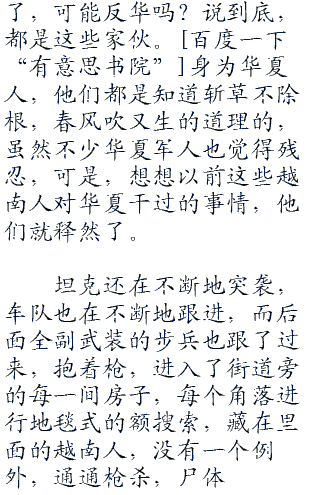 了，可能反华吗？说到底，
都是这些家伙。[百度一下
“有意思书院”]身为华夏
人，他们都是知道斩草不除
根，春风吹又生的道理的，
虽然不少华夏军人也觉得残
忍，可是，想想以前这些越
南人对华夏干过的事情，他
们就释然了。
坦克还在不断地突袭，
车队也在不断地跟进，而后
面全副武装的步兵也跟了过
来，抱着枪，进入了街道旁
的每一间房子，每个角落进
行地毯式的额搜索，藏在里
面的越南人，没有一个例
外，通通枪杀，尸体